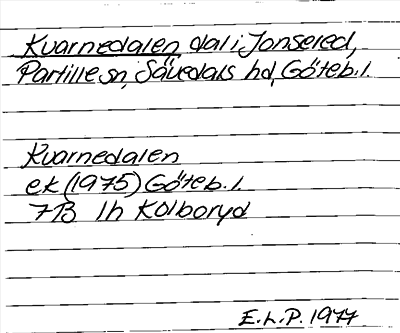 Kvarnedalen, dal i Jonsered,
Partille sn, Sävedals hd, Göteb. l.
Kvarnedalen
ek (1975) Göteb. l.
7B 1h Kolboryd
E.L.P. 1977